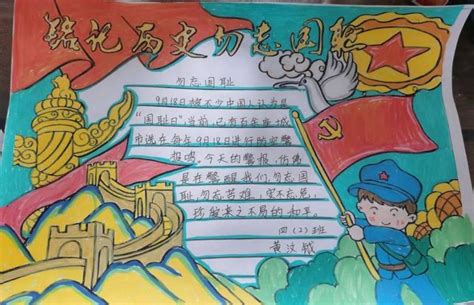 铭记历史勿忘国耻
勿忘国耻
9月18日被不少中国人认为是
"国耻日",当前,已有百余座城
市选在每年9月18日进行防空警
报鸣。今天的警报,仿佛
是在警醒我们,勿忘国
耻,勿忘苦难,安不忘危,
珍惜来之不易的和平。
四(2)班
黄汶钺